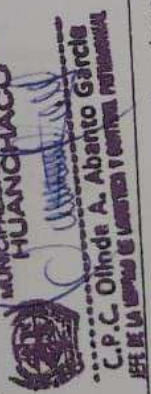 HUANCHACO
C.P.C. Olinda A. Abanto García
JEFE DE LA UNIDAD DE LOGISTICA Y CONTROL PATRIMONIAL